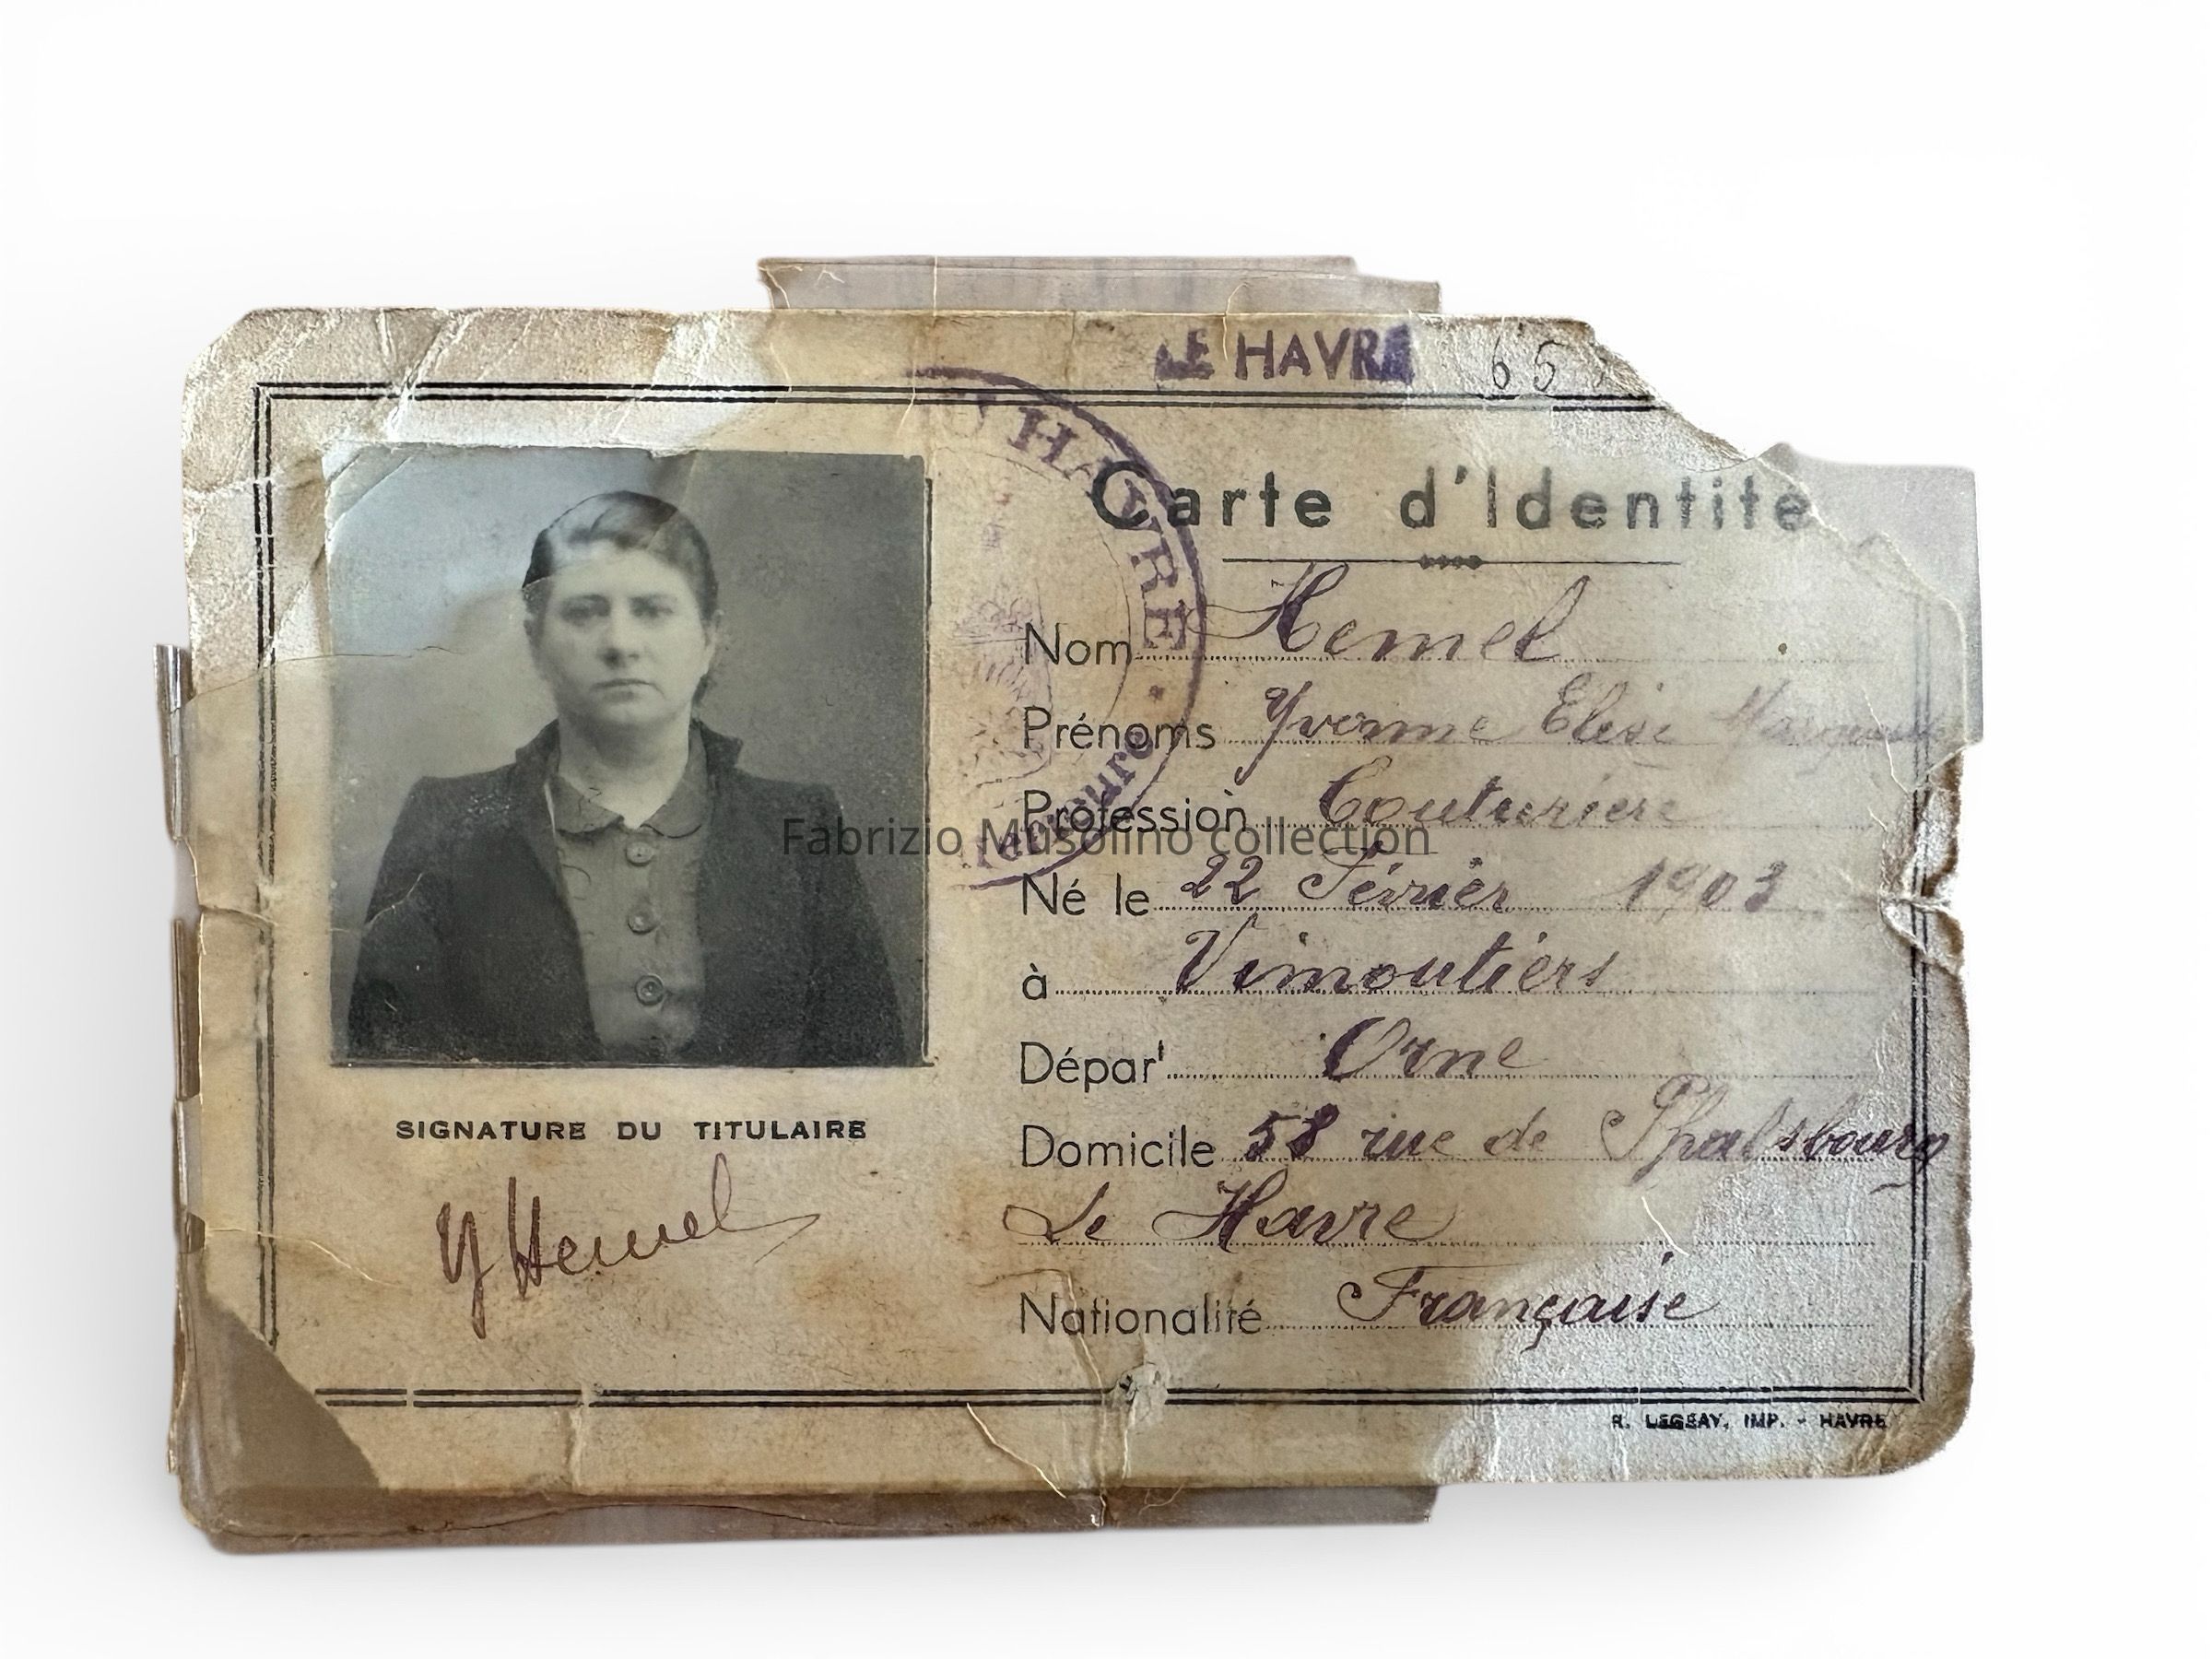 LE HAVRE 65
HAVRE
Carte d'Identité
Nom Hemel
Prénoms Yvonne Elise
Profession Couturière
Fabrizio Musolino collection
Né le 22 Février 1903
à Vimoutiers
Dépar^t Orne
Domicile 58 rue de Phalsbourg
Le Havre
Nationalité Française
SIGNATURE DU TITULAIRE
Y Hemel
R. LEGSAY, IMP. - HAVRE